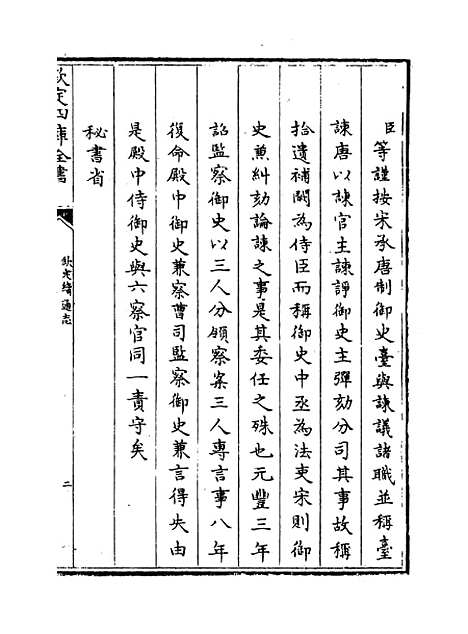 臣等謹按宋承唐制御史臺與諫議諸職並稱臺
諫唐以諫官主諫諍御史主彈劾分司其事故稱
拾遺補闕為侍臣而稱御史中丞為法吏宋則御
史兼糾劾論諫之事是其委任之殊也元豐三年
詔監察御史以三人分領察案三人專言事八年
復命殿中御史兼察曹司監察御史兼言得失由
是殿中侍御史與六察官同一責守矣
秘書省
欽定四庫全書
欽定續通志
二